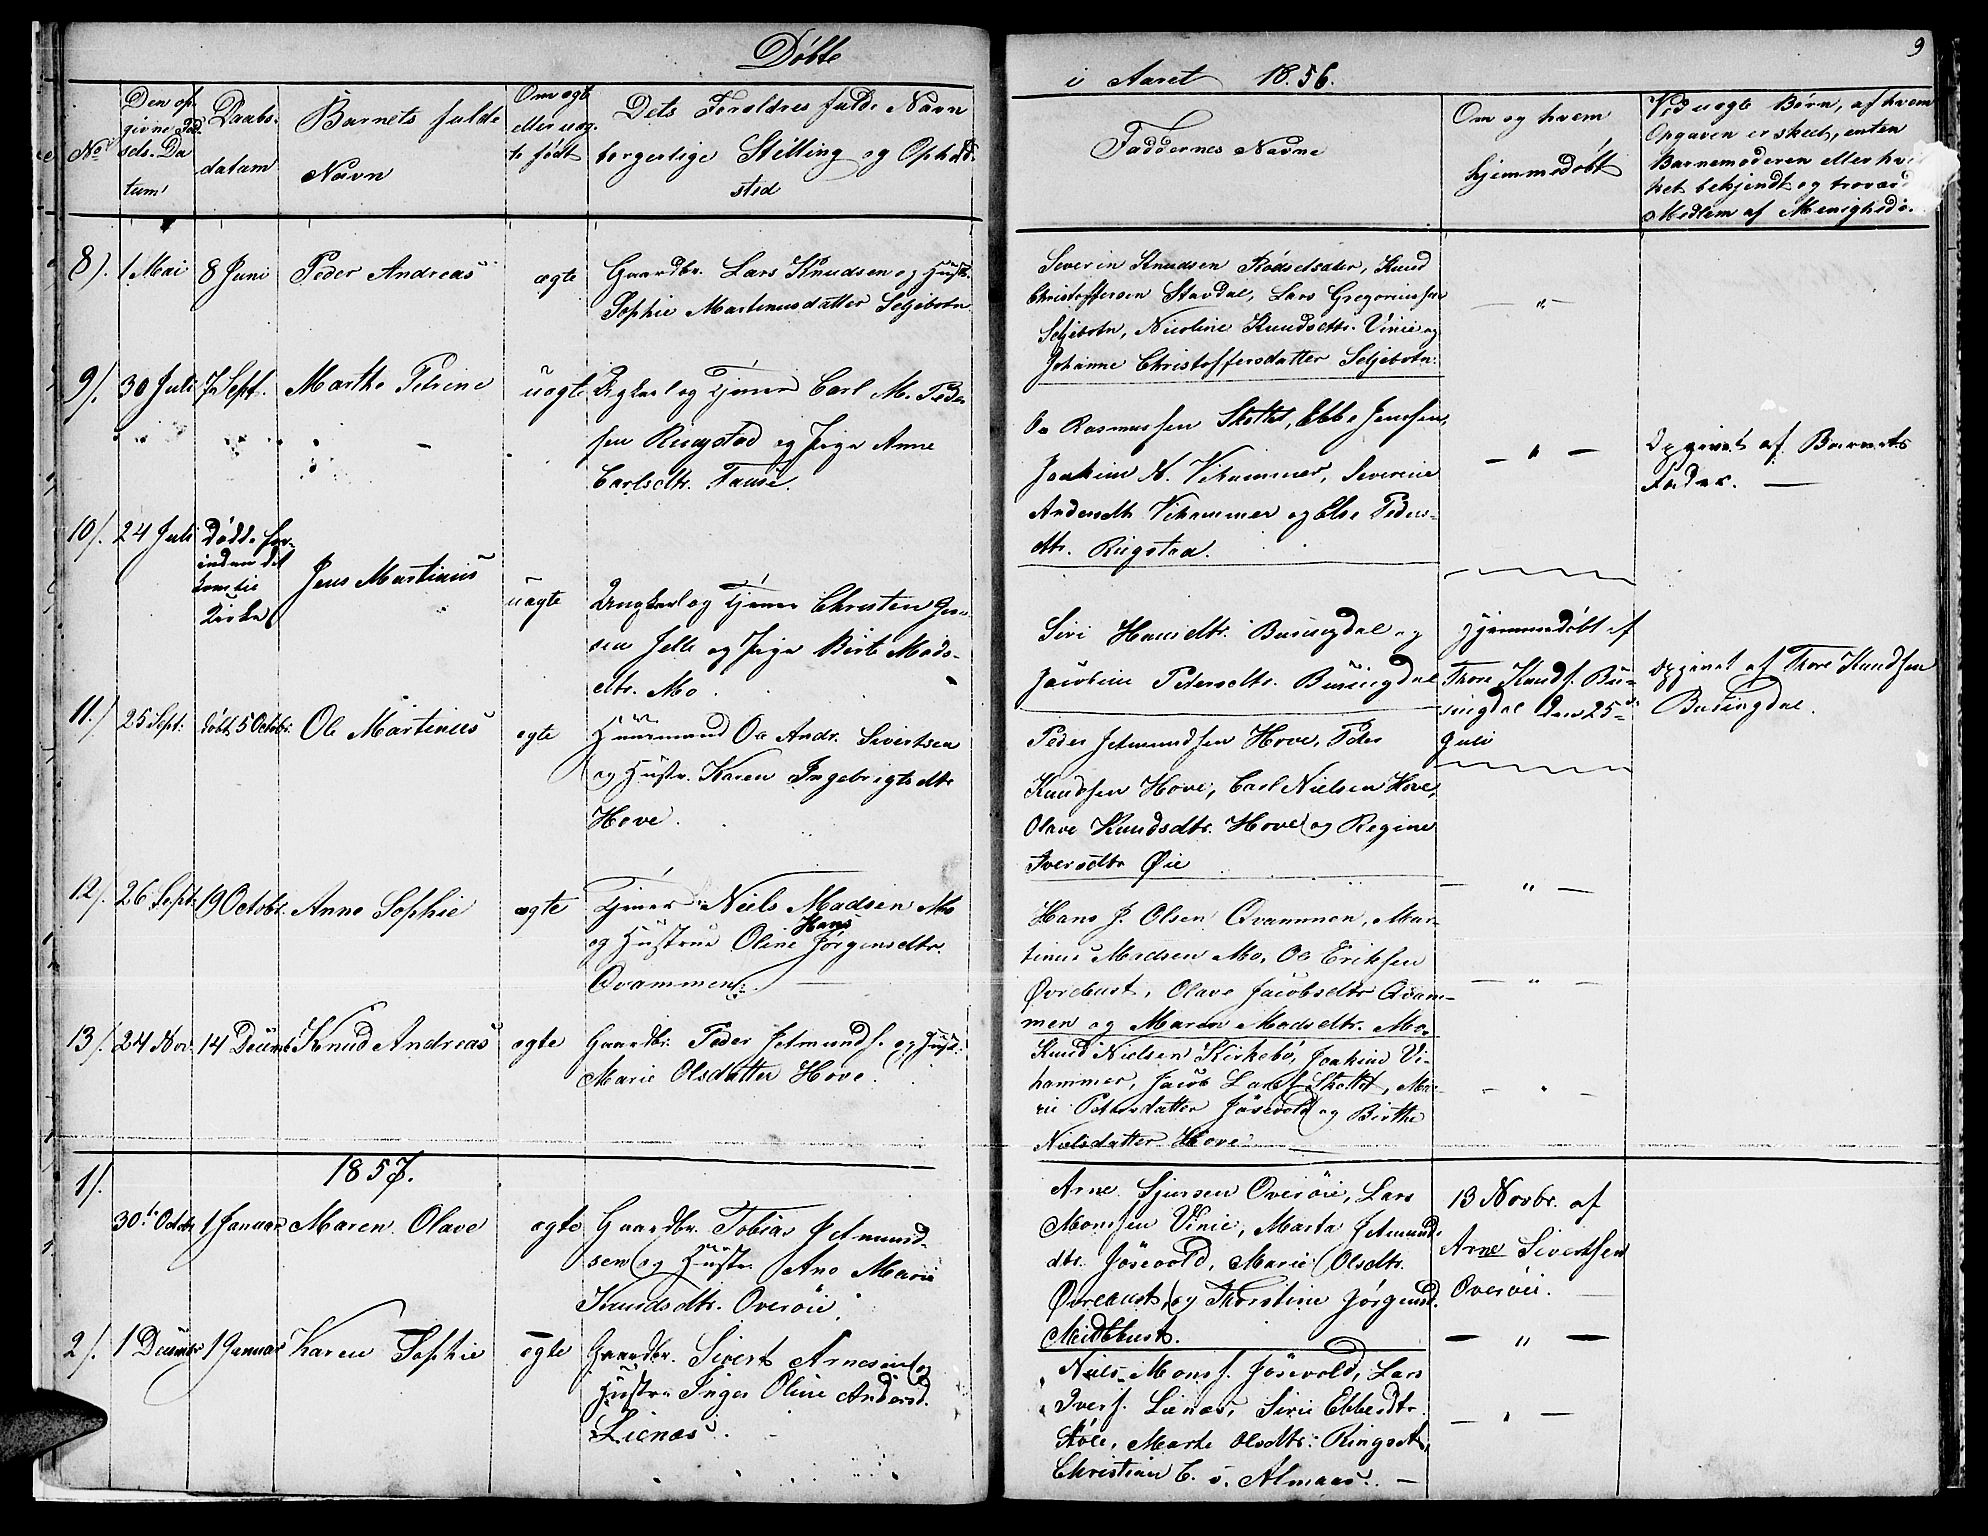 Döbte
i Aaret 1856.
9
No
Den op
givne Föd
sels-Da
tum
Daabs-
datum
Barnets fulde
Navn
Om ægte
eller uæg-
te födt
Dets Foreldres fulde Navn
borgerlige Stilling og Opholds
sted
Faddernes Navne
Om og hvem
hjemmedöbt
Ved uægte Börn, af hvem
Opgaven er skeet, enten
Barnemoderen eller hvil
ket bekjendt og troværd
Medlem af Menighede.
8). 1 Mai 8 Juni Peder Andreas ægte
Gaardbr. Lars Knudsen og Hustr.
Sophie Martinusdatter Seljebotn
Severin Knudsen Rödsetsæter, Knud
Christoffersen Stavdal, Lars Gregoriussen
Seljebotn, Nicoline Knudsdtr. Vinie og
Johanne Christoffersdatter Seljebotn.
— " —
9). 30 Juli 7 Sept. Marthe Petrine uægte
Ungkarl og Tjener Carl M. Peder
sen Ringstad og Pige Anne
Carlsdtr. Fause.
Ole Rasmussen Skottet, Ebbe Jenssen,
Joakim N. Vihammer, Severine
Andersdtr Vihammer og Else Peders-
dtr. Ringstad.
— " —
Opgivet af Barnets
Fader. —
10). 24 Juli Dödte for-
inden det
kom til
Kirke
Jens Martinus uægte
Ungkarl og Tjener Christen Jen-
sen Jelle og Pige Birte Mads-
dtr. Mo
Siri Hansdtr. Busingdal og
Jacobine Petersdtr. Busingdal
Hjemmedöbt af
Thore Knuds. Bu-
singdal den 25de
Juli
Opgivet af Thore Knudsen
Busingdal.
11.) 25 Sept. döbt 5 Octobr. Ole Martinus ægte
Huusmand Ole Andr. Sivertsen
og Hustr. Karen Ingebrigtsdtr
Hove.
Peder Jetmundsen Hove, Peder
Knudsen Hove, Carl Nielsen Hove,
Olave Knudsdtr. Hove og Regine
Iversdtr Øie
— " —
12). 26 Sept. 19 Octobr. Anne Sophie ægte
Tjener Niels Madsen Mo
Hans
og Hustrue Oline Jörgensdtr.
Qvammen. —
Hans J. Olsen Qvammen, Mar-
tinus Madsen Mo, Ole Eriksen
Øvrebust, Olave Jacobsdtr Qvam-
men og Maren Madsdtr. Mo.
— " —
13). 24 Nov. 14 Decembr Knud Andreas ægte
Gaardbr. Peder Jetmunds. og Hust.
Marie Olsdatter Hove.
Knud Nielsen Kirkebö, Joakim Vi-
hammer, Jacob Lars. Skottet, Ma-
rie Petersdatter Jösevold og Birthe
Nielsdatter Hove
— " —
1857.
1). 30te Octobr 1 Januar Maren Olave ægte
Gaardbr. Tobias Jetmund-
sen og Hustr. Ane Marie
Knudsdtr. Overöie.
Arne Sjursen Overöie, Lars
Monssen Vinie, Marta Jetmunds
dtr. Jösevold, Marie Olsdtr.
Øvrebust, og Thorstine Jörgensd.
Midtbust.
13 Novbr. af
Arne Sivertsen
Overöie.
2). 1 Decembr 1 Januar Karen Sophie ægte
Gaardbr. Sivert Arnesen og
Hustru Inger Oline Andersd.
Lienæs.
Niels Mons. Jösevold, Lars
Ivers. Lienæs, Sirie Ebbesdtr.
Støle, Marte Olsdtr. Ringset,
Christian C. s. Almaas. —
— " —
— " —